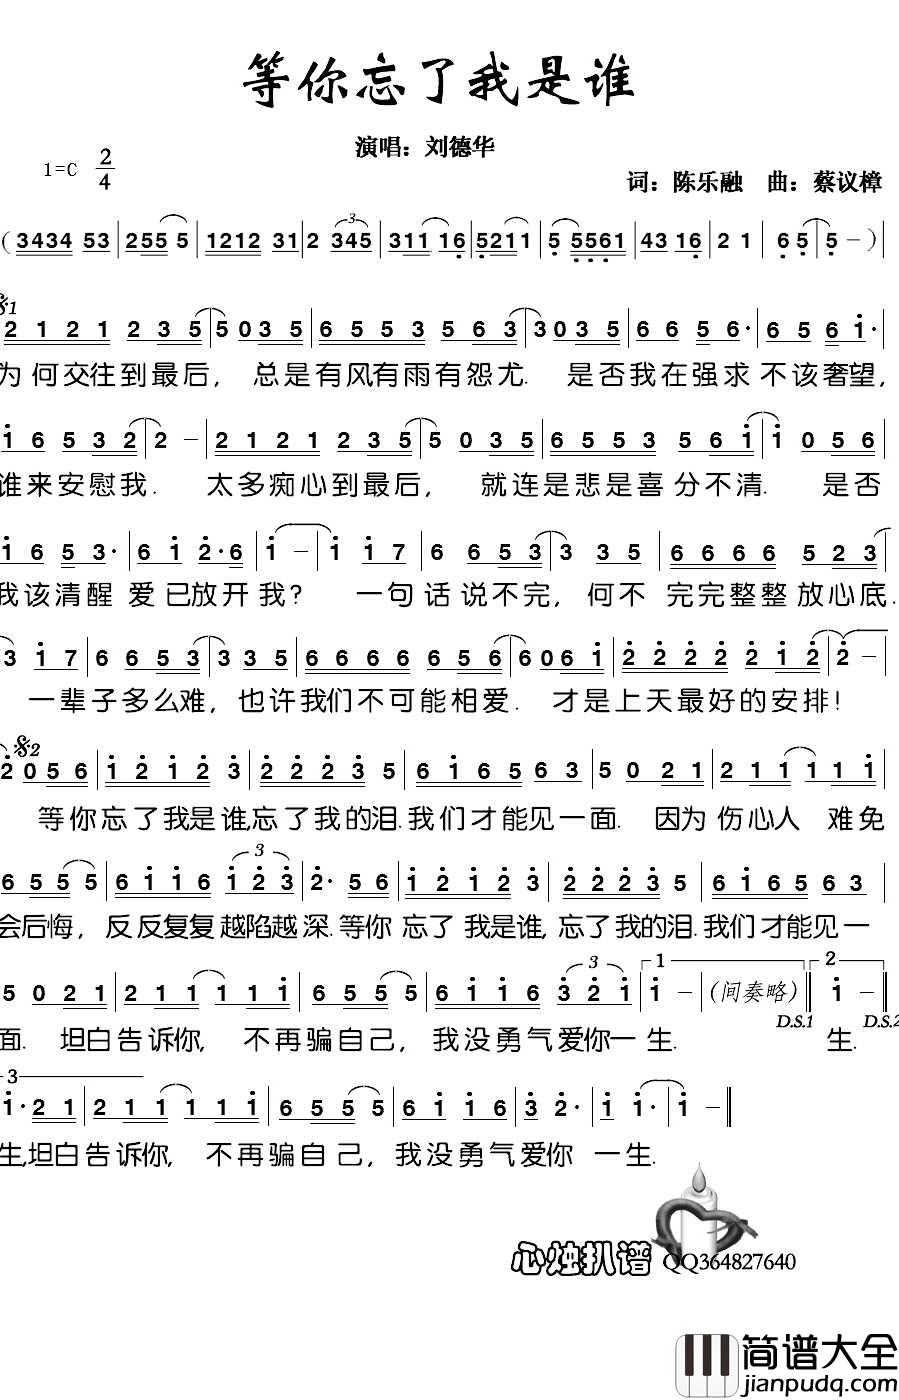 等你忘了我是谁
演唱：刘德华
1=C 2/4
词：陈乐融 曲：蔡议樟
( 3434 53 | 2555 | 1212 31 | 2 345 | 311 16 | 5211 | 5 5561 | 43 16 | 2 1 | 6 5 | 5 - )
𝄋1
2 1 2 1 2 3 5 | 5 0 3 5 | 6 5 5 3 5 6 3 | 3 0 3 5 | 6 6 5 6· | 6 5 6 1· |
为何交往到最后，总是有风有雨有怨尤. 是否我在强求 不该奢望，
1 6 5 3 2 | 2 - | 2 1 2 1 2 3 5 | 5 0 3 5 | 6 5 5 3 5 6 1 | 1 0 5 6 |
谁来安慰我. 太多痴心到最后， 就连是悲是喜分不清. 是否
1 6 5 3· | 6 1 2· 6 | 1 - | 1 1 7 | 6 6 5 3 | 3 3 5 | 6 6 6 6 5 2 3 |
我该清醒 爱已放开我？ 一句话说不完，何不 完完整整放心底.
3 1 7 | 6 6 5 3 | 3 3 5 | 6 6 6 6 6 5 6 | 6 0 6 1 | 2 2 2 2 2 1 2 | 2 - |
一辈子多么难，也许我们不可能相爱. 才是上天最好的安排！
𝄋2
2 0 5 6 | 1 2 1 2 3 | 2 2 2 3 5 | 6 1 6 5 6 3 | 5 0 2 1 | 2 1 1 1 1 1 |
等你忘了我是谁,忘了我的泪.我们才能见一面. 因为伤心人 难免
6 5 5 5 | 6 1 1 6 1 2 3 | 2· 5 6 | 1 2 1 2 3 | 2 2 2 3 5 | 6 1 6 5 6 3 |
会后悔，反反复复越陷越深.等你忘了我是谁, 忘了我的泪.我们才能见一
5 0 2 1 | 2 1 1 1 1 1 | 6 5 5 5 | 6 1 1 6 3 2 1 | 1 1 - | (间奏略) 2 1 -
D.S.1 D.S.2
面. 坦白告诉你, 不再骗自己，我没勇气爱你一生. 生.
3
1· 2 1 | 2 1 1 1 1 1 | 6 5 5 5 | 6 1 1 6 | 3 2· | 1 1· | 1 -
生,坦白告诉你, 不再骗自己，我没勇气爱你 一生.
心烛扒谱 QQ364827640
简谱大全
jianpudq.com